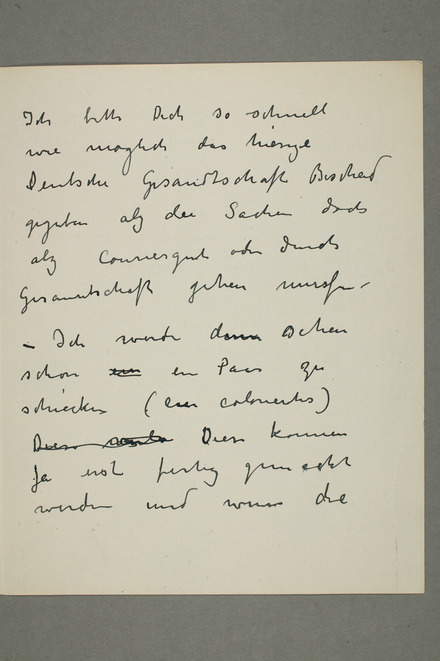 Ich bitte Dich so schnell
wie möglich das hiesige
Deutsche Gesandtschaft Bescheid
gegeben alz die Sachen doch
alz Couriergut oder durch
Gesamtschaft gehen
- Ich werde dann sehen
schon ein en Paar zu
schicken (ein colorierte)
Diese werde Diese konnen
Ja erst fertig gemacht
werden und wenn die